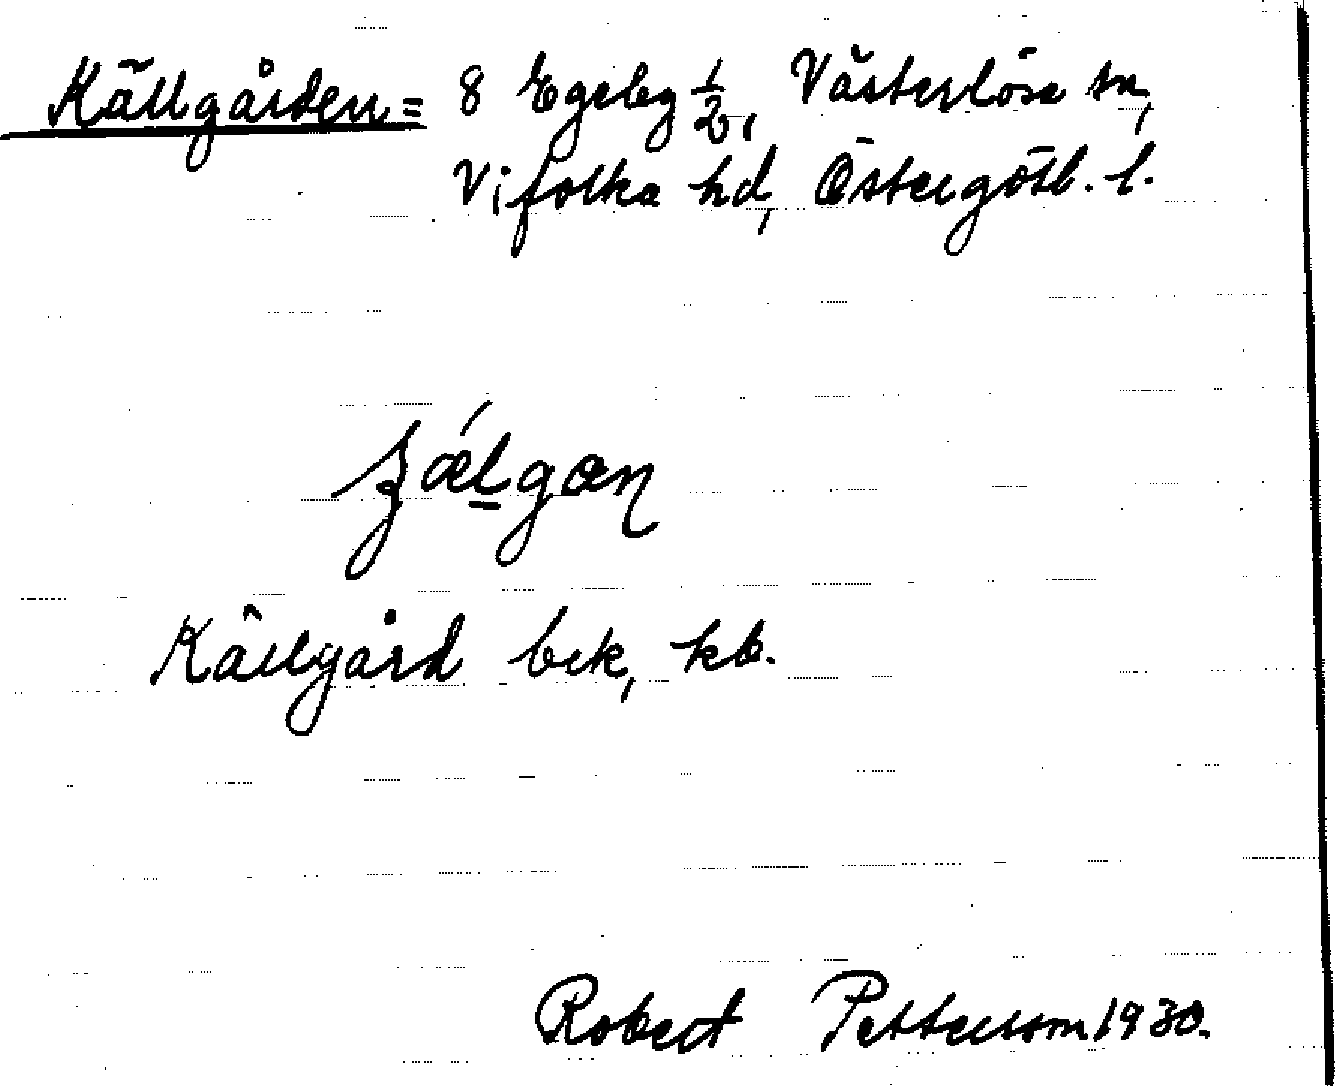 Källgården = 8 Egeby 1/2, Västerlösa sn,
Vifolka hd, Östergötl. l.
Källgård bek, kb.
Robert Pettersson 1930.